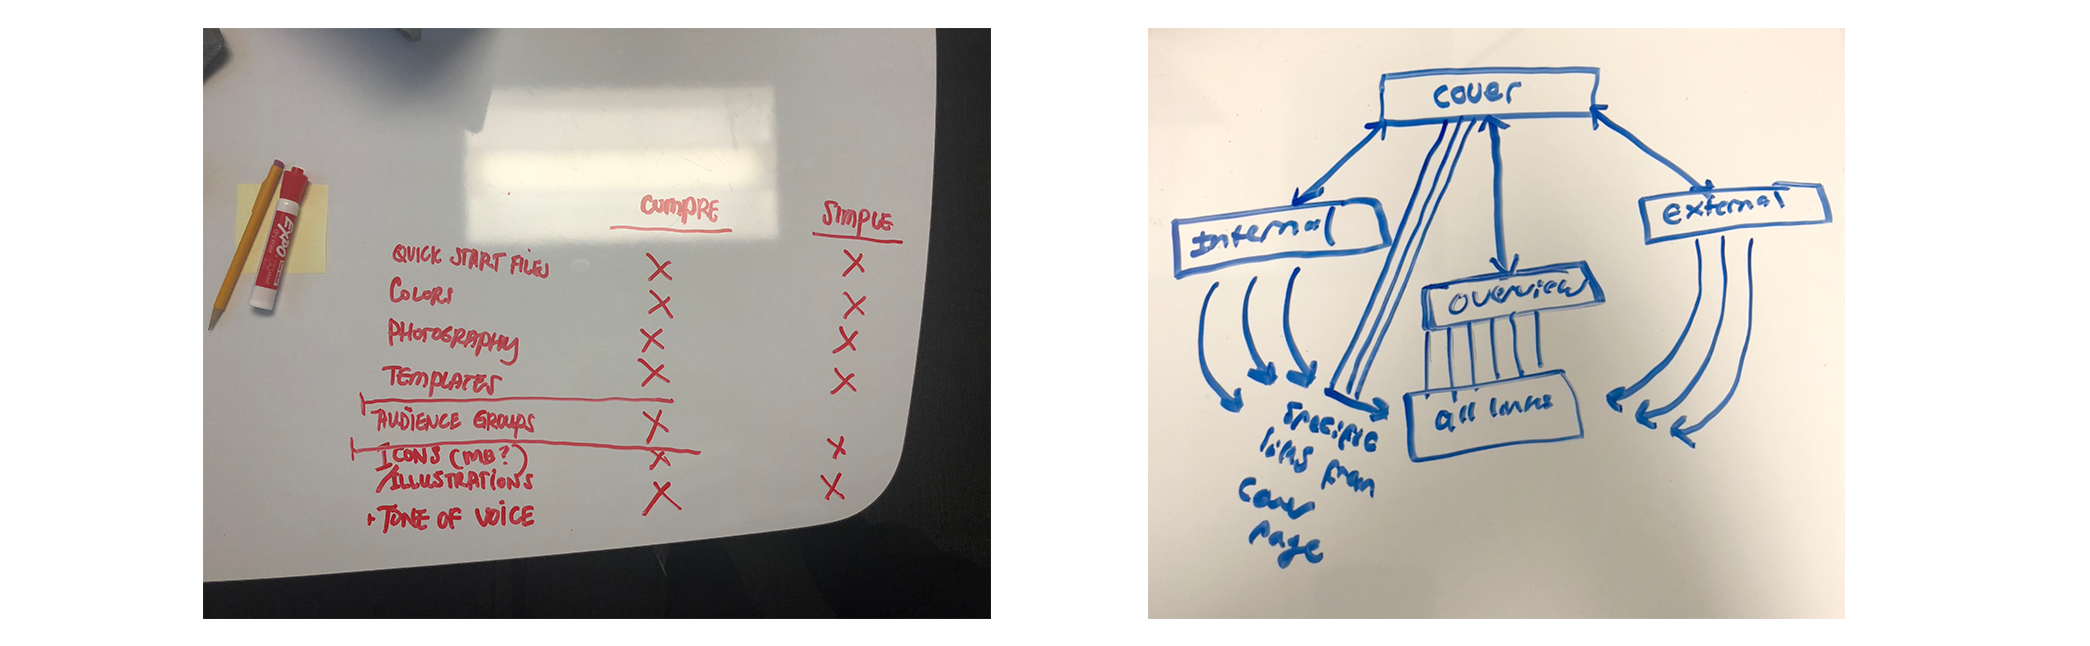 CUMPRE SIMPLE
QUICK START FILES X X
COLORS X X
PHOTOGRAPHY X X
TEMPLATES X X
AUDIENCE GROUPS X
ICONS (MB?) X X
/ILLUSTRATIONS
+ TONE OF VOICE X X
EXPO
cover
Internal
external
overview
all links
specific
links from
cover
page